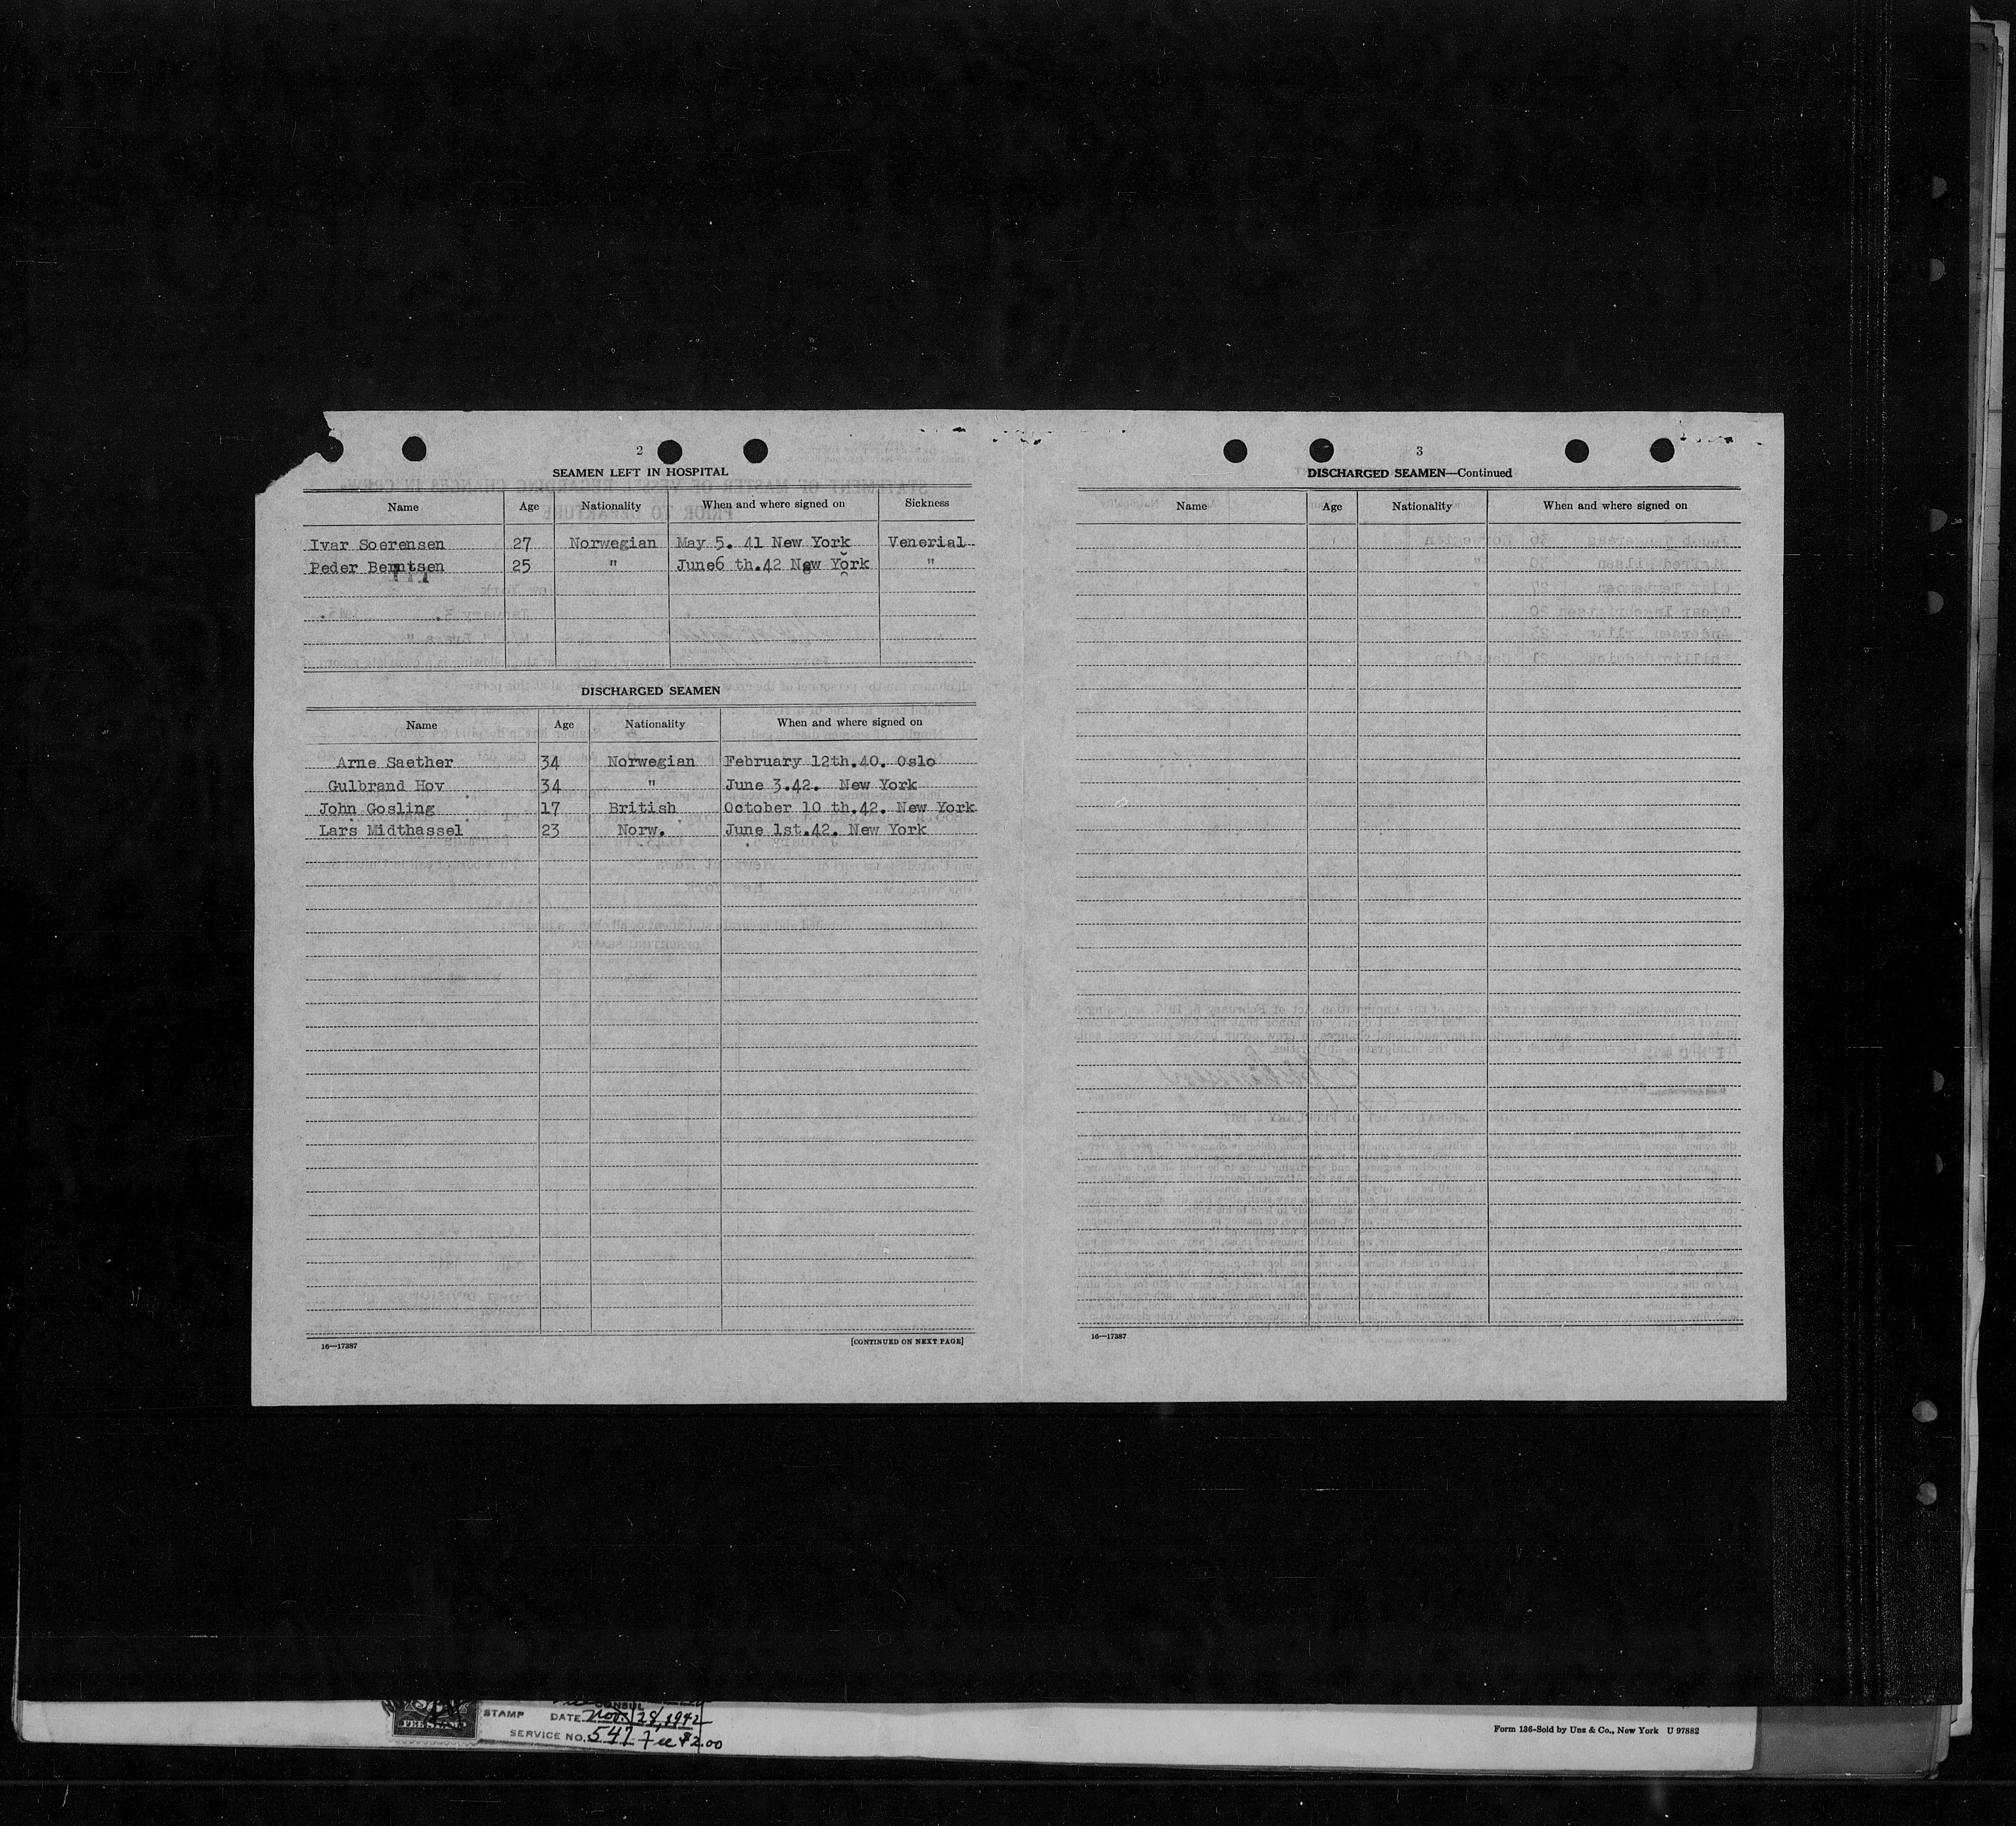 2
SEAMEN LEFT IN HOSPITAL
Name Age Nationality When and where signed on Sickness
Ivar Soerensen 27 Norwegian May 5. 41 New York Venerial
Peder Berntsen 25 " June6 th.42 New York "
DISCHARGED SEAMEN
Name Age Nationality When and where signed on
Arne Saether 34 Norwegian February 12th.40. Oslo
Gulbrand Hov 34 " June 3.42. New York
John Gosling 17 British October 10 th.42. New York
Lars Midthassel 23 Norw. June 1st.42. New York
16—17387
[CONTINUED ON NEXT PAGE]
3
DISCHARGED SEAMEN—Continued
Name Age Nationality When and where signed on
16—17387
CONSUL
STAMP DATE Nov. 28, 1942
SERVICE NO. 547 Fee $2.00
FEE STAMP
Form 136-Sold by Unz & Co., New York U 97882